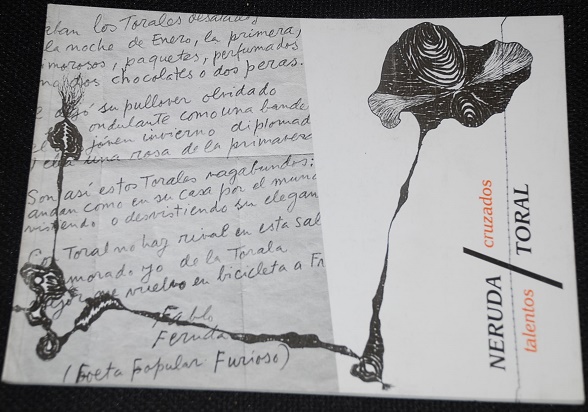 los Torales desata
la noche de Enero, la primera,
morosos, paquetes, perfumados
dos chocolates o dos peras.
dejó su pullover olvidado
ondulante como una bande
jóven invierno diplomad
una rosa de la primavera
Son así estos Torales vagabundos:
andan como en su casa por el mund
vistiendo o desvistiendo su elegan
Toral no hay rival en esta sal
morado yo de la Torala
que vuelvo en bicicleta a Fr
Fablo
Feruda
(Foeta Fopular Furioso)
NERUDA / TORAL
talentos cruzados